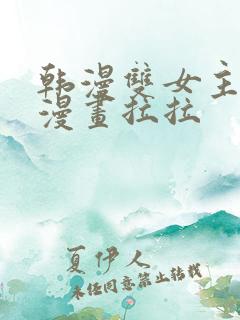 韩漫雙女主
漫畫拉拉
夏伊人
未经同意禁止转载